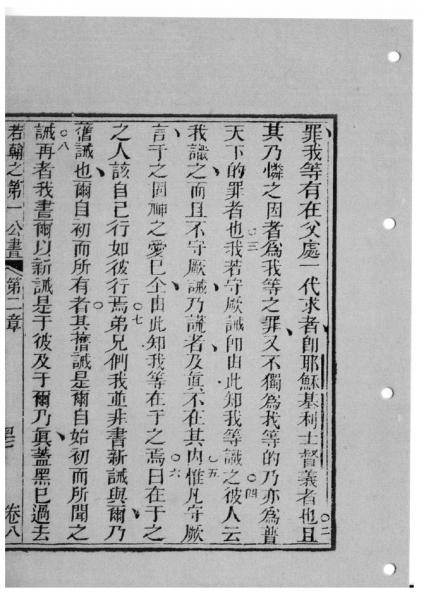 罪我等有在父處一代求者卽耶穌基利士督義者也且
其乃憐之因者為我等之罪又不獨為我等的乃亦為普
天下的罪者也我若守厥誡卽由此知我等識之彼人云
我識之而且不守厥誡乃謊者及眞不在其內惟凡守厥
言于之因神之愛已全由此知我等在于之焉曰在于之
之人該自己行如彼行焉弟兄們我並非書新誡與爾乃
舊誡也爾自初而所有者其舊誡是爾自始初而所聞之
誡再者我書爾以新誡是于彼及于爾乃眞蓋黑已過去
若翰之第一公書 第二章 卷八